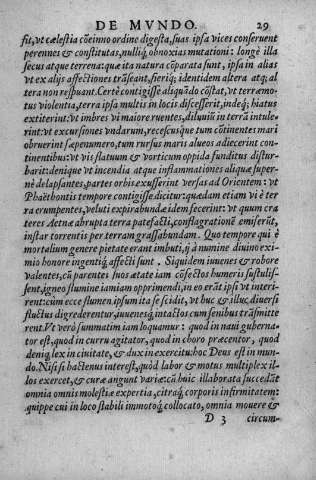 DE MVNDO. 29
sit, vt cælestia cõeinno ordine digesta, suas ipsa vices conseruent
perennes & constitutas, nulliq; obnoxias mutationi: longè illa
secus atque terrena: quæ ita natura cõparata sunt, ipsa in alias
vt ex alijs affectiones trãseant, fieriq; identidem altera atq; al
tera non respuant. Certè contigisse aliquãdo cõstat, vt terræmo
tus violentia, terra ipsa multis in locis discesserit, indeq; hiatus
extiterint: vt imbres vi maiore ruentes, diluuiũ in terrã intule
rint: vt excursiones vndarum, recessusque tum cõtinentes mari
obruerint sæpenumero, tum rursus maris alueos adiecerint con
tinentibus: vt vis flatuum & vorticum oppida funditus distur
barit: denique vt incendia atque inflammationes aliquæ super-
nè delapsantes, partes orbis exusserint versas ad Orientem: vt
Phaëthontis tempore contigisse dicitur: quædam etiam vi è ter
ra erumpentes, veluti expirabundæ idem fecerint: vt quum cra
teres Actæ abrupta terra patefacti, conflagrationẽ emiserũt,
instar torrentis per terram grassabundam. Quo tempore qui è
mortalium genere pietate erant imbuti, ij à numine diuino exi-
mio honore ingentiq; affecti sunt. Siquidem iuuenes & robore
valentes, cũ parentes suos ætate iam cõfectos humeris sustulis-
sent, igneo flumine iamiam opprimendi, in eo erãt ipsi vt interi-
rent: cum ecce flumen ipsum ita se scidit, vt huc & illuc diuersi
fluctus digrederentur, iuuenesq; intactos cum senibus trãsmitte
rent. Vt verò summatim iam loquamur: quod in naui guberna-
tor est, quod in curru agitator, quod in choro præcentor, quod
deniq; lex in ciuitate, & dux in exercitu: hoc Deus est in mun-
do. Nisi si hactenus interest, quòd labor & motus multiplex il-
los exercet, & curæ angunt variæ: cũ huic illaborata succedãt
omnia omnis molestiæ expertia, citraq; corporis infirmitatem:
quippe cui in loco stabili immotoq; collocato, omnia mouere &
D 3 circum-